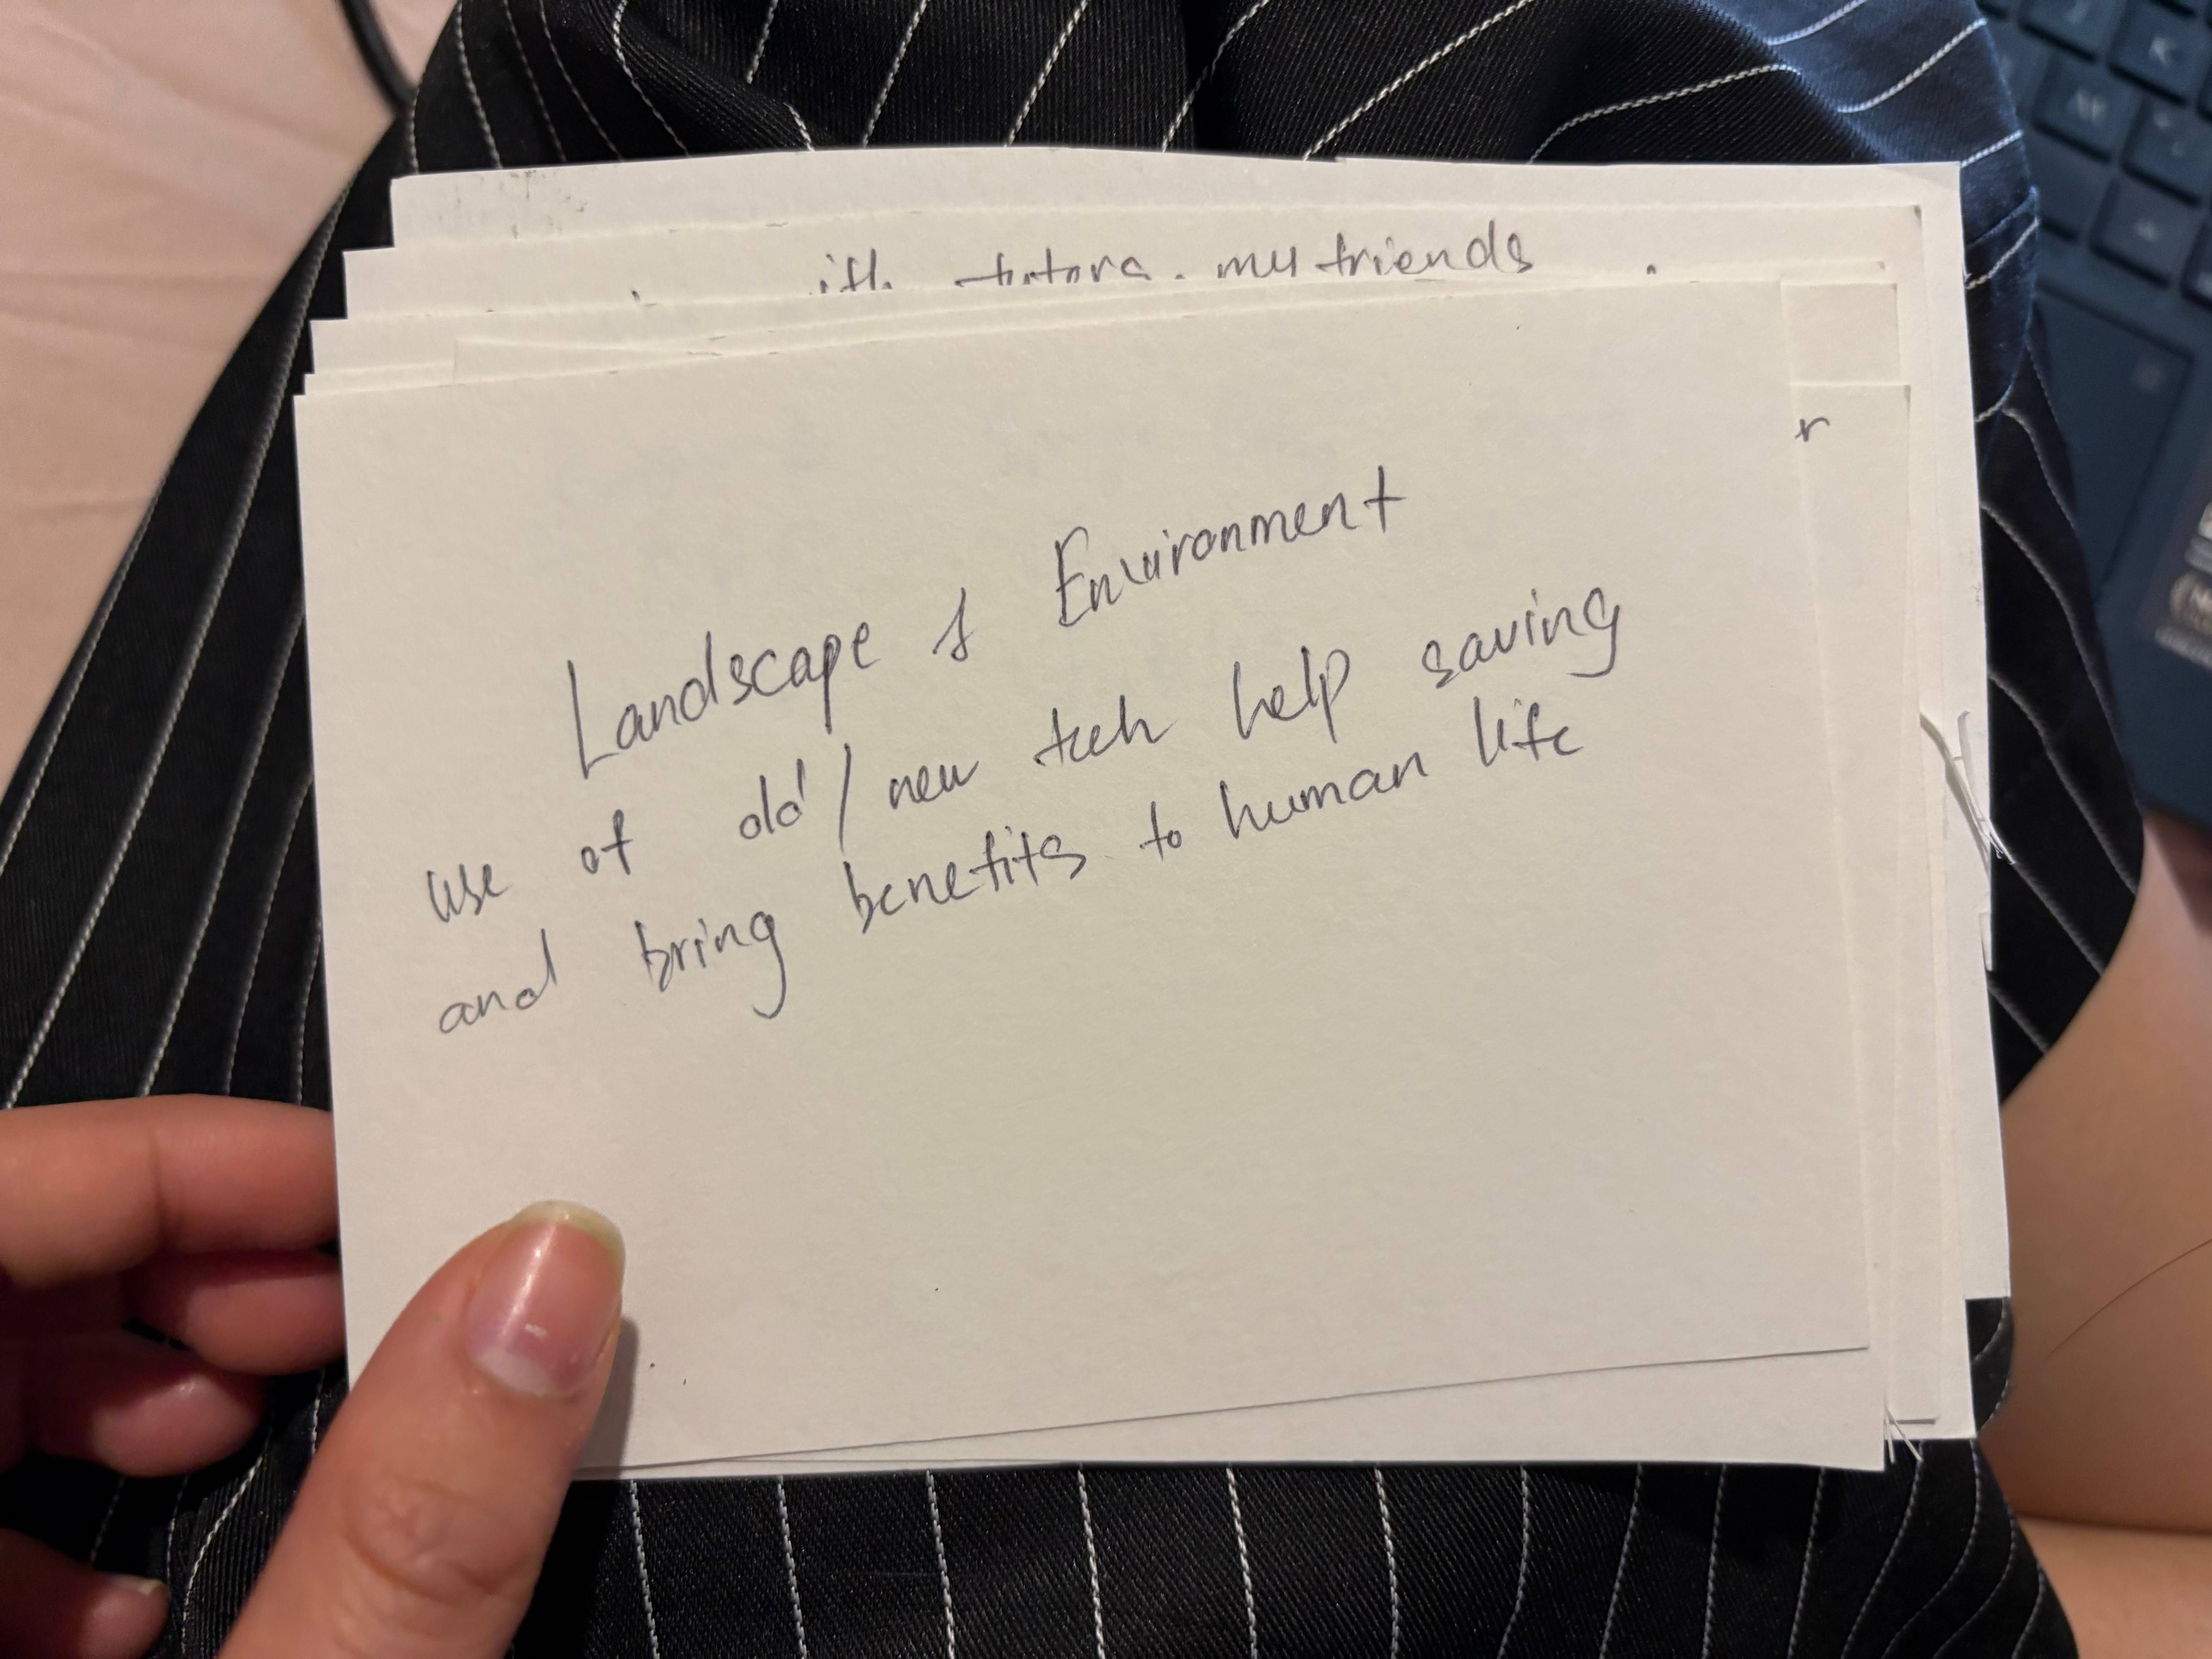 my friends
r
Landscape & Environment
use of old/new tech help saving
and bring benefits to human life